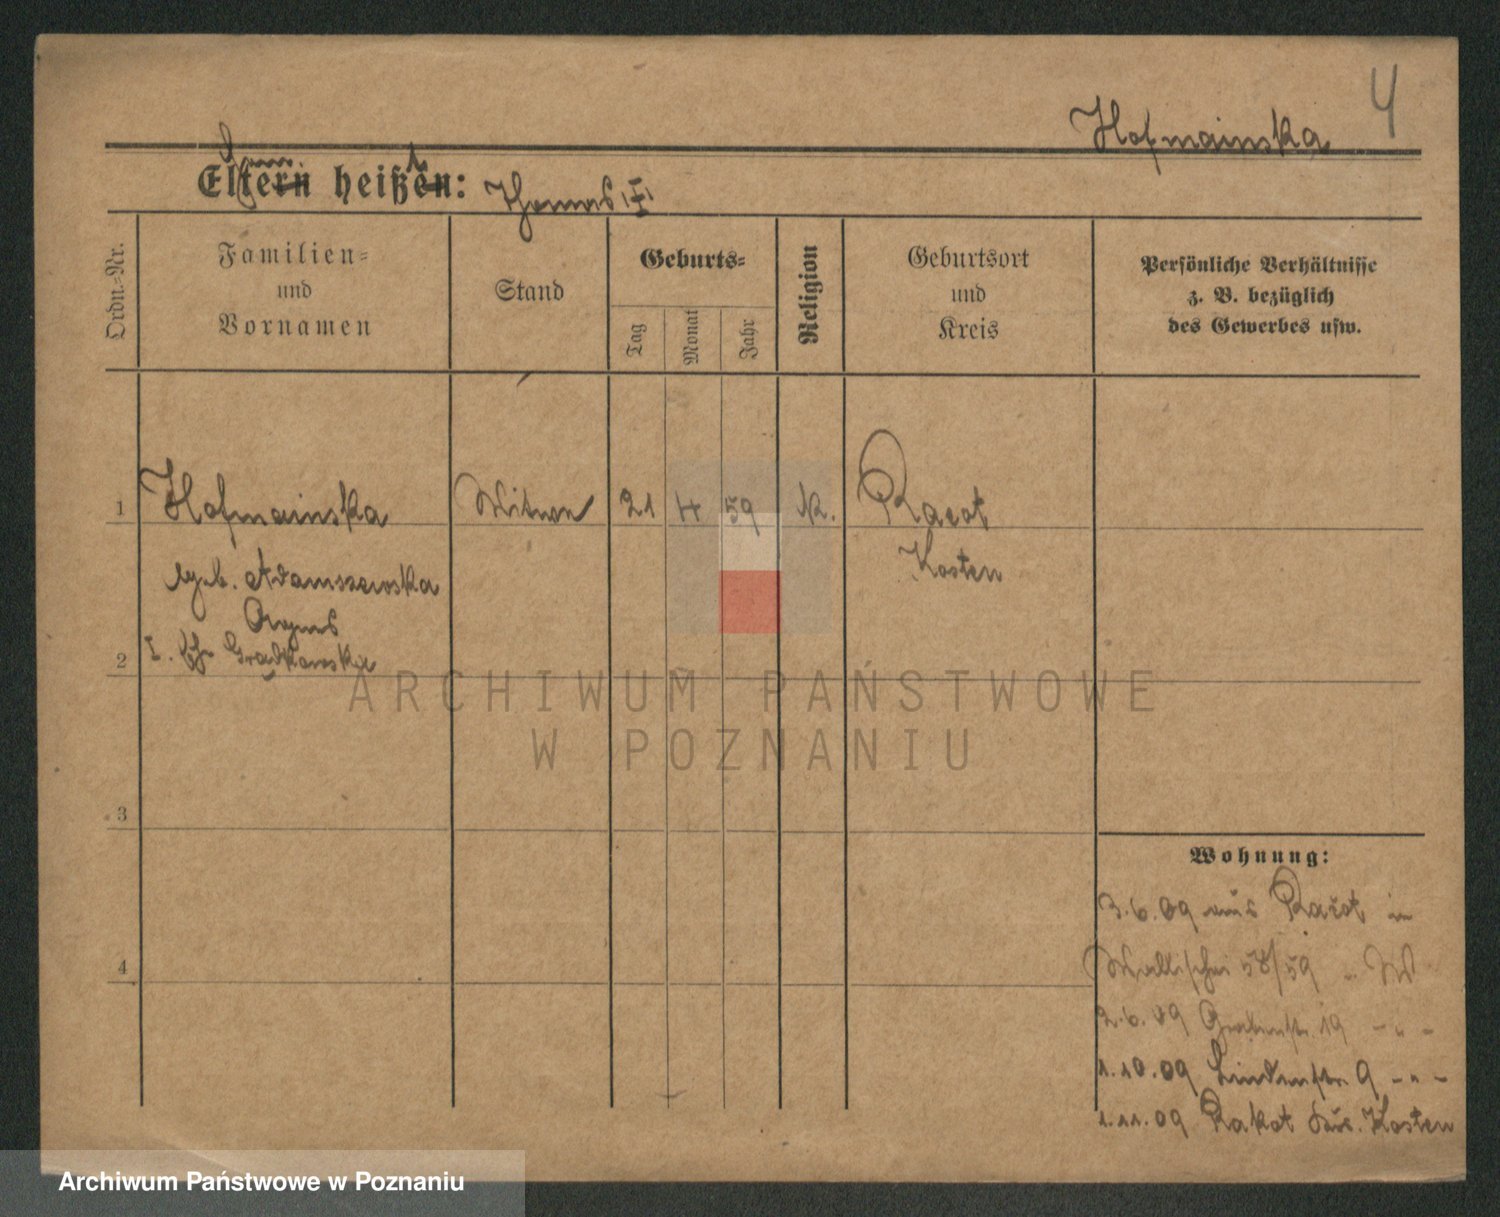 4
Hofmainska
Eltern heißen: Thomas II
Ordn.-Nr.
Familien-
und
Vornamen
Stand
Geburts-
Tag
Monat
Jahr
Religion
Geburtsort
und
Kreis
Persönliche Verhältnisse
z. B. bezüglich
des Gewerbes usw.
1 Hofmainska Witwe 21 4 59 K. Racot
Kosten
geb. Adamszewska
Agnes
2 I. Grądkowska
ARCHIWUM PAŃSTWOWE
W POZNANIU
3
4
Wohnung:
3.6.09 aus Racot in
Wallischei 58/59
2.6.09 Grabenstr. 19 - " -
1.10.09 Lindenstr. 9 - " -
1.11.09 Rakot Krs. Kosten
Archiwum Państwowe w Poznaniu